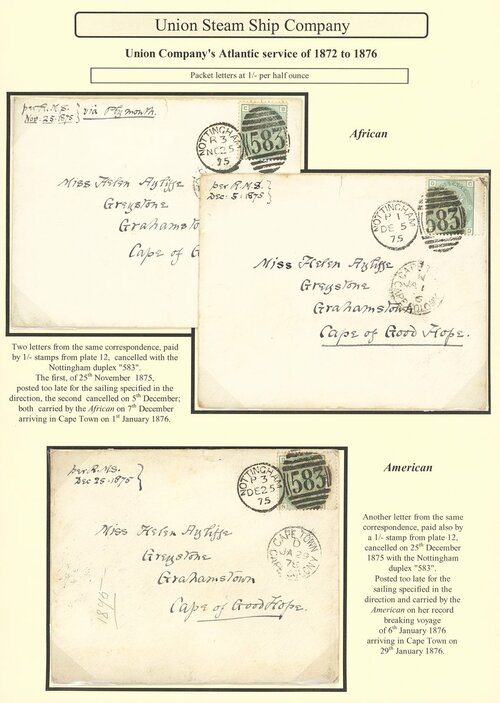 Union Steam Ship Company
Union Company's Atlantic service of 1872 to 1876
Packet letters at 1/- per half ounce
African
per R.M.S.
Nov. 25. 1875
via Plymouth.
NOTTINGHAM
NO 25
75
583
Miss Helen Ayliffe
Greystone
Grahamsto
Cape of G
per R.M.S.
Dec. 5. 1875
NOTTINGHAM
P 1
DE 5
75
583
Miss Helen Ayliffe
Greystone
Grahamstown
Cape of Good Hope.
Two letters from the same correspondence, paid
by 1/- stamps from plate 12, cancelled with the
Nottingham duplex "583".
The first, of 25th November 1875,
posted too late for the sailing specified in the
direction, the second cancelled on 5th December;
both carried by the African on 7th December
arriving in Cape Town on 1st January 1876.
American
per R.M.S.
Dec 25. 1875
NOTTINGHAM
P 3
DE 25
75
583
CAPE TOWN
JA 29
76
Miss Helen Ayliffe
Greystone
Grahamstown
Cape of Good Hope.
Another letter from the same
correspondence, paid also by
a 1/- stamp from plate 12,
cancelled on 25th December
1875 with the Nottingham
duplex "583".
Posted too late for the
sailing specified in the
direction and carried by the
American on her record
breaking voyage
of 6th January 1876
arriving in Cape Town on
29th January 1876.